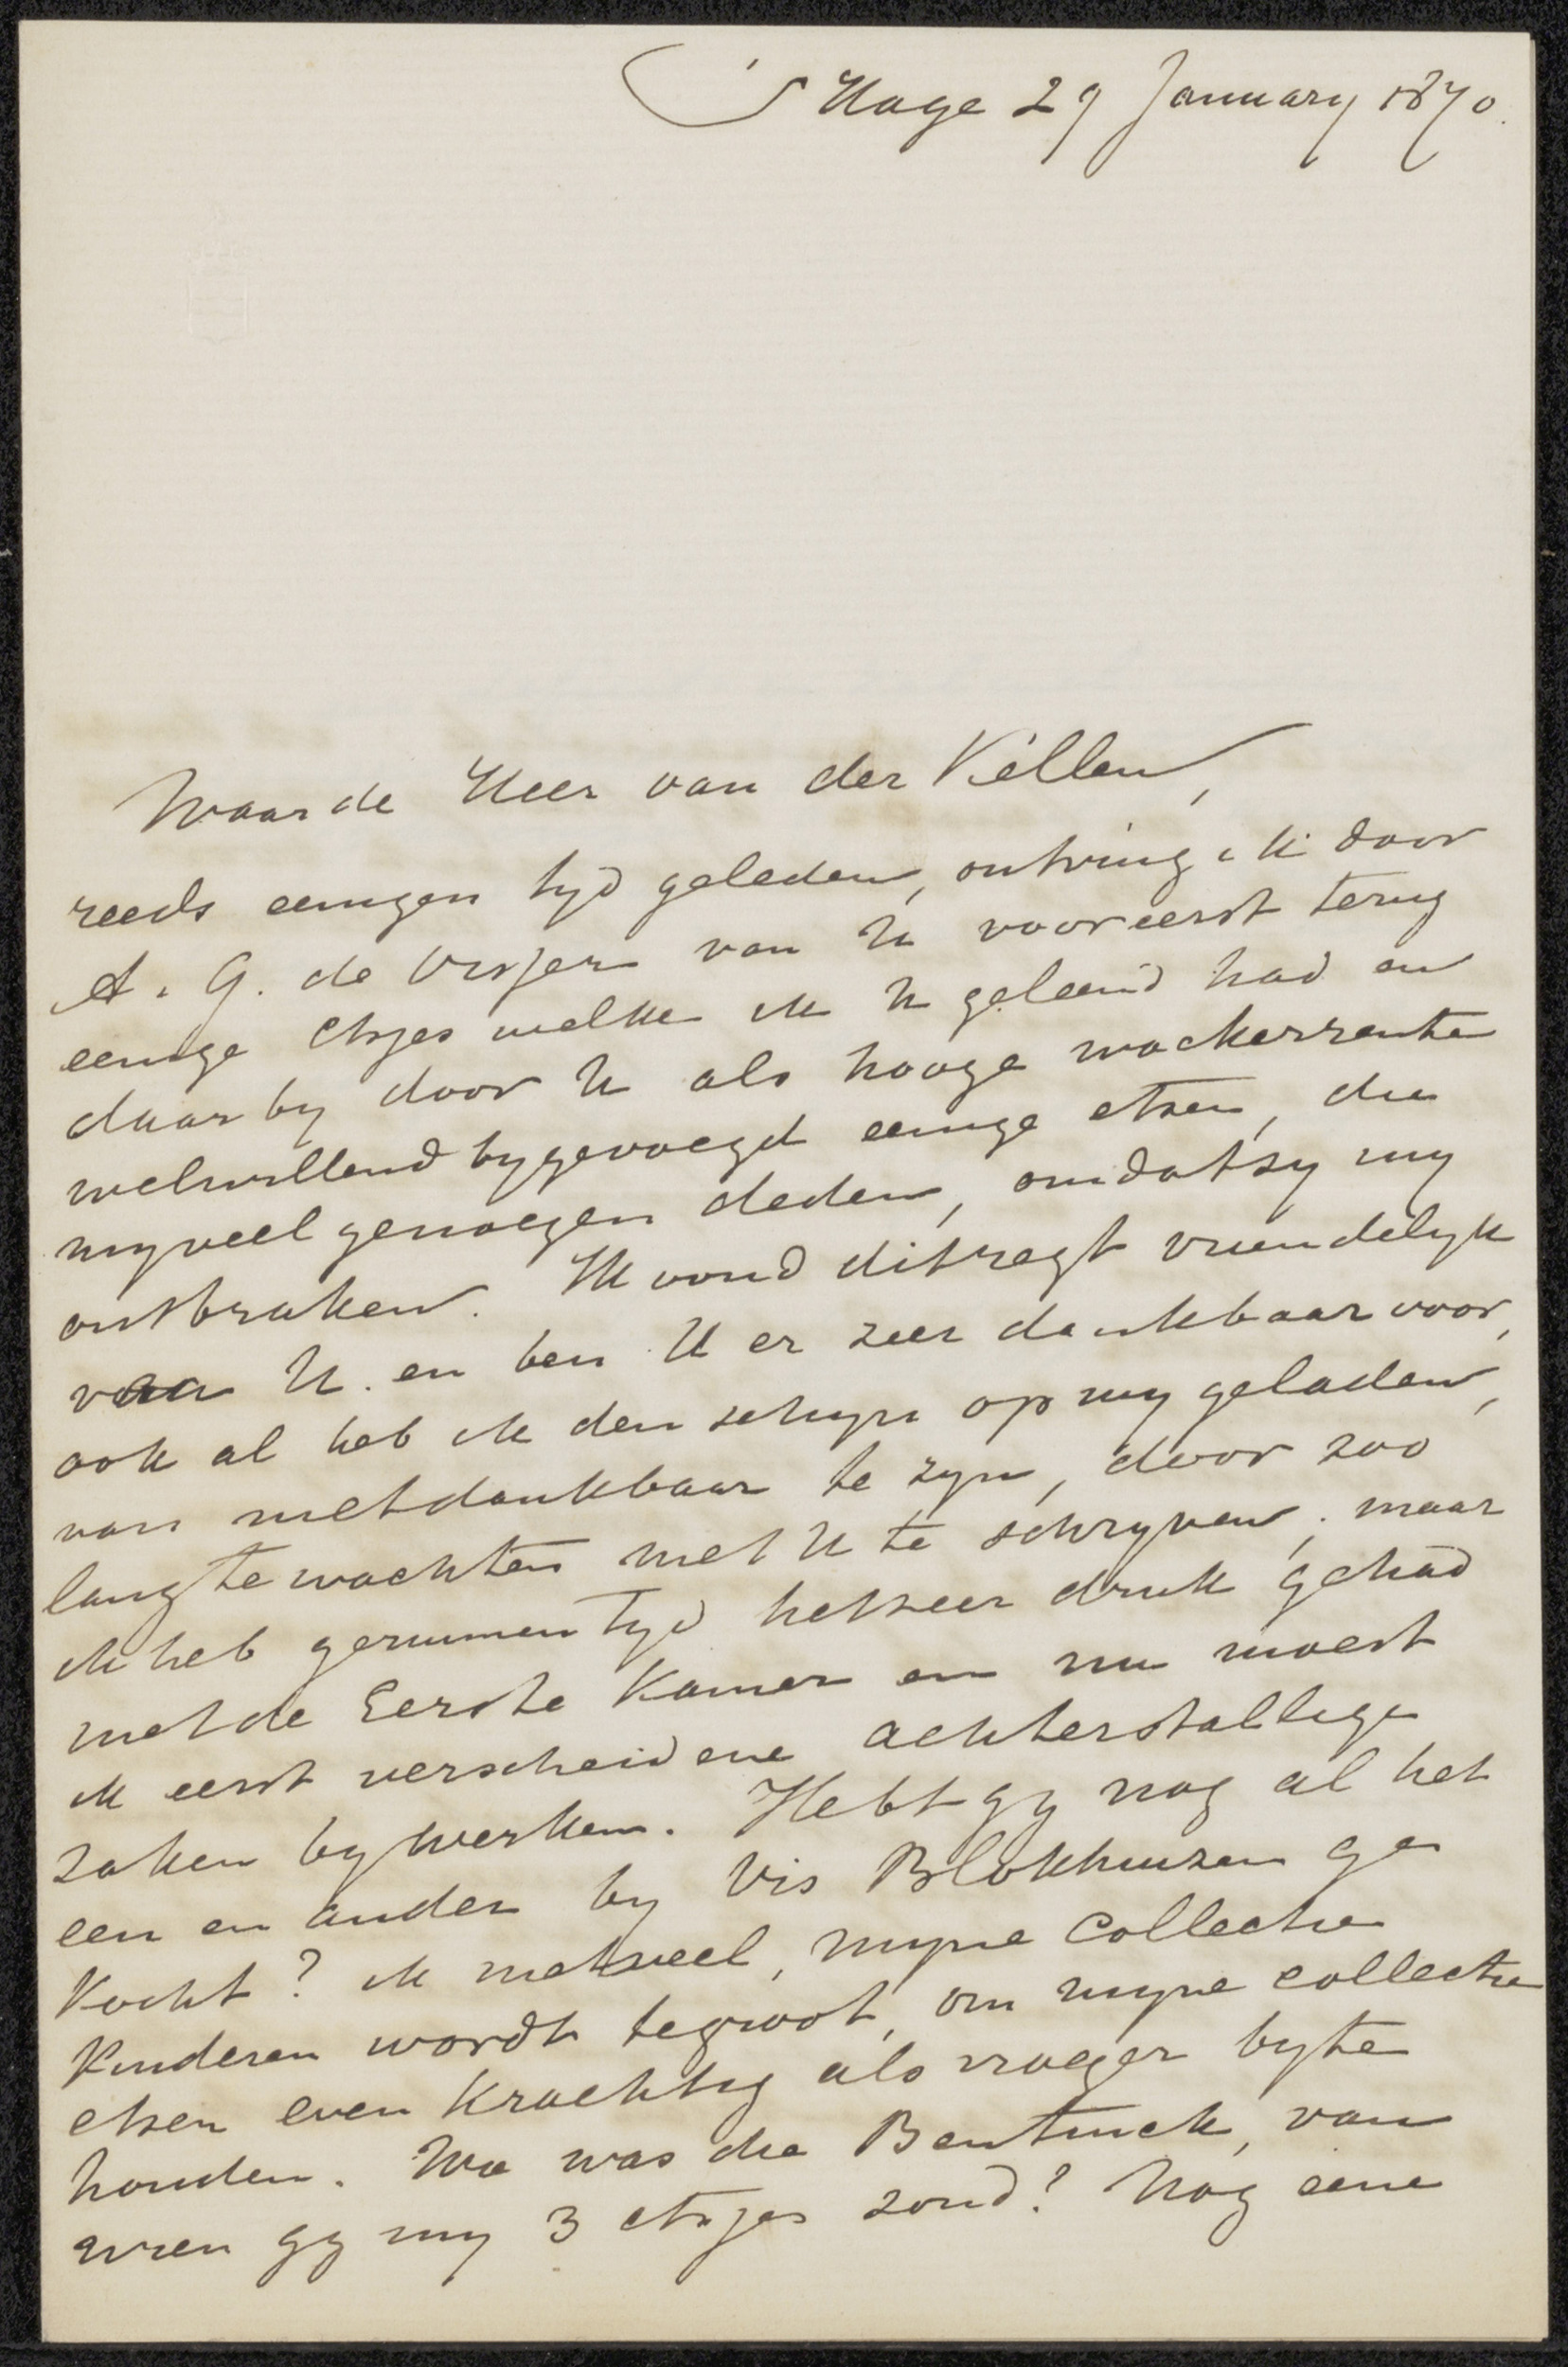 's Hage 29 January 1870.
Waarde Heer van der Kellen,
reeds eenigen tyd geleden, ontving ik door
A. G. de Visser van U vooreerst terug
eenige etsjes welke ik U geleend had en
daarby door U als hooge woekerrente
welwillend bygevoegd eenige etsen, die
my veel genoegen deden, omdat zy my
ontbraken. Ik vond dit regt vriendelyk
van U. en ben U er zeer dankbaar voor,
ook al heb ik den schyn op my geladen,
van niet dankbaar te zyn, door zoo
lang te wachten met U te schryven; maar
ik heb geruimen tyd het zeer druk gehad
met de Eerste Kamer en nu moest
ik eerst verscheidene achterstallige
zaken bywerken. Hebt gy nog al het
een en ander by Vis Blokhuizen ge
kocht? ik niet veel, myne collectie
kinderen wordt te groot, om myne collectie
etsen even krachtig als vroeger by te
houden. Wie was die Bentinck, van
wien gy my 3 etsjes zond? Nog eene